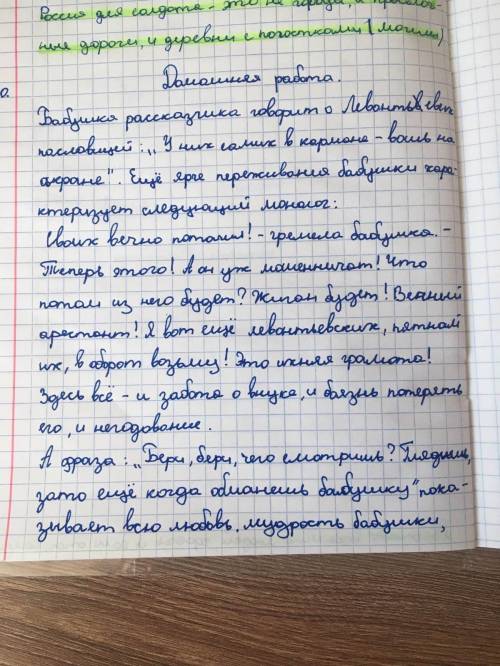 Россия для солдата - это не города, а просёлоч-
ные дороги, и деревни с погостами (могилы)
Домашняя работа.
Бабушка рассказчика говорит о Левонтьевских
пословицей: „У них самих в кармане - вошь на
аркане". Ещё ярче переживания бабушки хара-
ктеризует следующий монолог:
Своих вечно потатчи! - гремела бабушка. -
Теперь этого! А он уж мошенничат! Что
потом из него будет? Жиган будет! Вечный
арестант! Я вот ещё левонтьевских, пятнай
их, в оборот возьму! Это ихняя грамота!
Здесь всё - и забота о внуке, и боязнь потерять
его, и негодование.
А фраза: „Бери, бери, чего смотришь? Глядишь,
зато ещё когда обманешь бабушку" пока-
зывает всю любовь, мудрость бабушки,